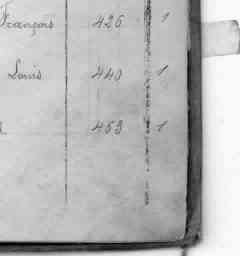 François 426 1
Louis 440 1
453 1